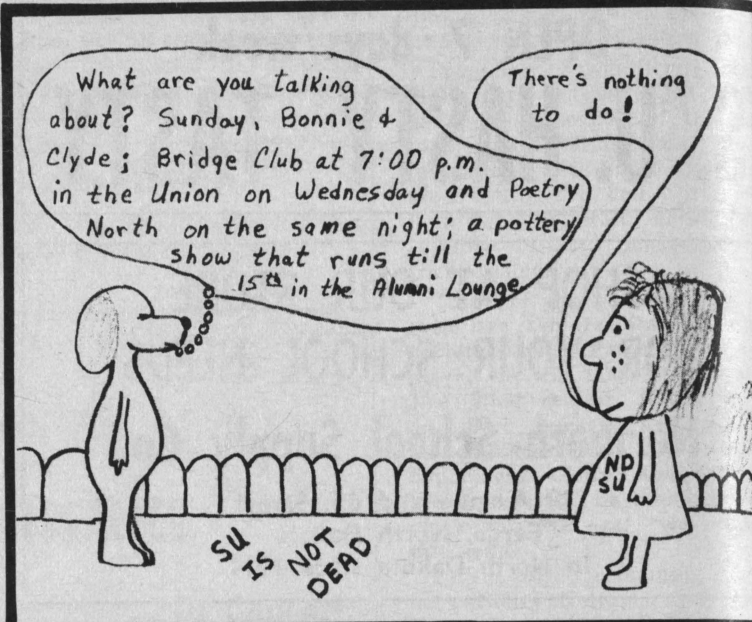 There's nothing
to do!
What are you talking
about? Sunday, Bonnie &
Clyde; Bridge Club at 7:00 p.m.
in the Union on Wednesday and Poetry
North on the same night; a pottery
show that runs till the
15th in the Alumni Lounge.
ND
SU
SU
IS NOT
DEAD